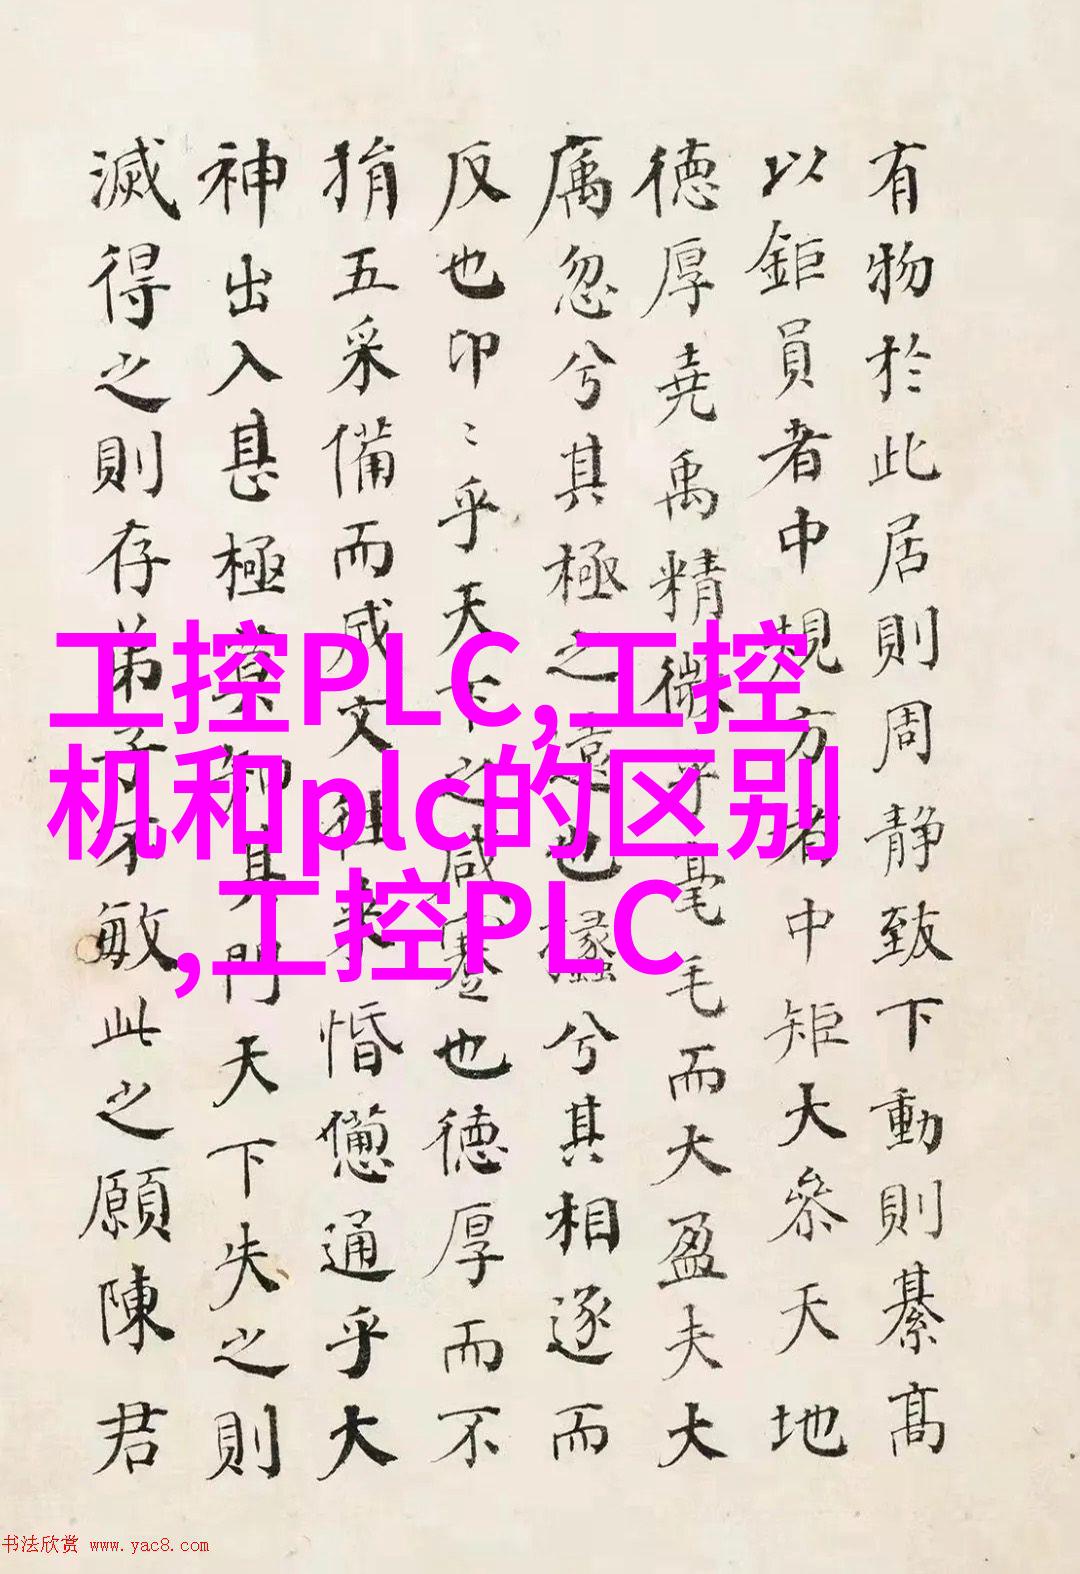 有物於此居則周靜致下動則綦髙
以鉅員者中規方者中矩大叅天地
德厚堯禹精微乎毫毛而大盈夫大
忽兮其極之遠也攭兮其相逐而
反也卬〻乎天下之咸蹇也德厚而不
捐五采備而成文往来惛憊通乎大
神出入甚極莫知其門天下失之則
滅得之則存弟子不敏此之願陳君
工控PLC,工控
机和plc的区别
,工控PLC
书法欣赏 www.yac8.com